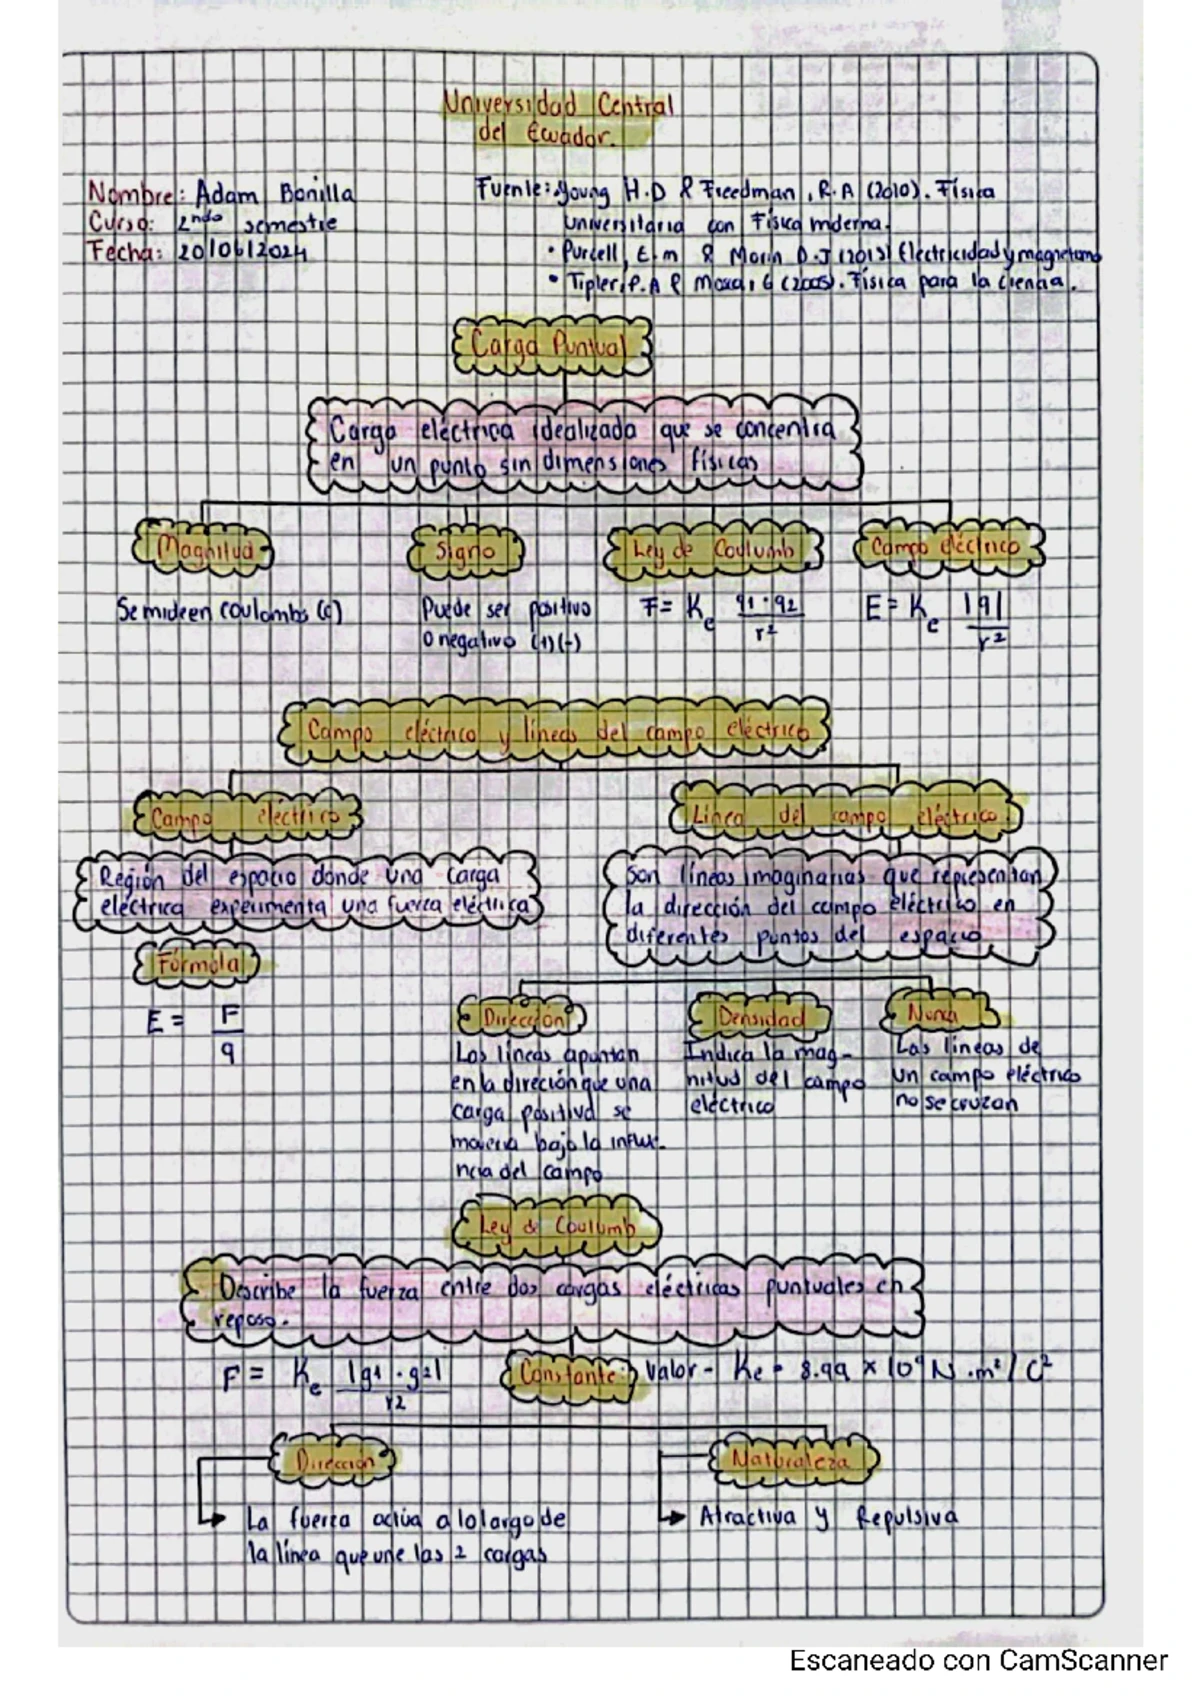 Universidad Central
del Ecuador.
Nombre: Adam Bonilla
Curso: 2ndo semestre
Fecha: 20/06/2024
Fuente: Young H.D & Freedman, R.A (2010). Física
universitaria con Física mderna.
• Purcell, E.m & Morin D.J (2013) Electricidad y magnetismo
• Tipler, P.A & Mosca, G (2005). Física para la ciencia.
Carga Puntual
Carga eléctrica idealizada que se concentra
en un punto sin dimensiones físicas
Magnitud
Signo
Ley de Coulumb
Campo eléctrico
Se mideen coulombs (c)
Puede ser positivo
o negativo (+)(-)
F = Ke q1·q2
r²
E = Ke |q|
r²
Campo eléctrico y líneas del campo eléctrico
Campo eléctrico
Línea del campo eléctrico
Región del espacio donde una carga
eléctrica experimenta una fuerza eléctrica
Son líneas imaginarias que representan
la dirección del campo eléctrico en
diferentes puntos del espacio
Fórmola
E = F
q
Dirección
Densidad
Nunca
Las líneas apuntan
en la direción que una
carga positiva se
movería bajo la influe-
ncia del campo
Indica la mag-
nitud del campo
eléctrico
Las líneas de
un campo eléctrico
no se cruzan
Ley de Coulumb
Describe la fuerza entre dos cargas eléctricas puntuales en
reposo.
F = Ke |q1·q2|
r2
Constante: Valor - Ke = 8.99 × 10⁹ N.m²/C²
Dirección
Naturaleza
La fuerza actúa a lo largo de
la línea que une las 2 cargas
Atractiva y Repulsiva
Escaneado con CamScanner